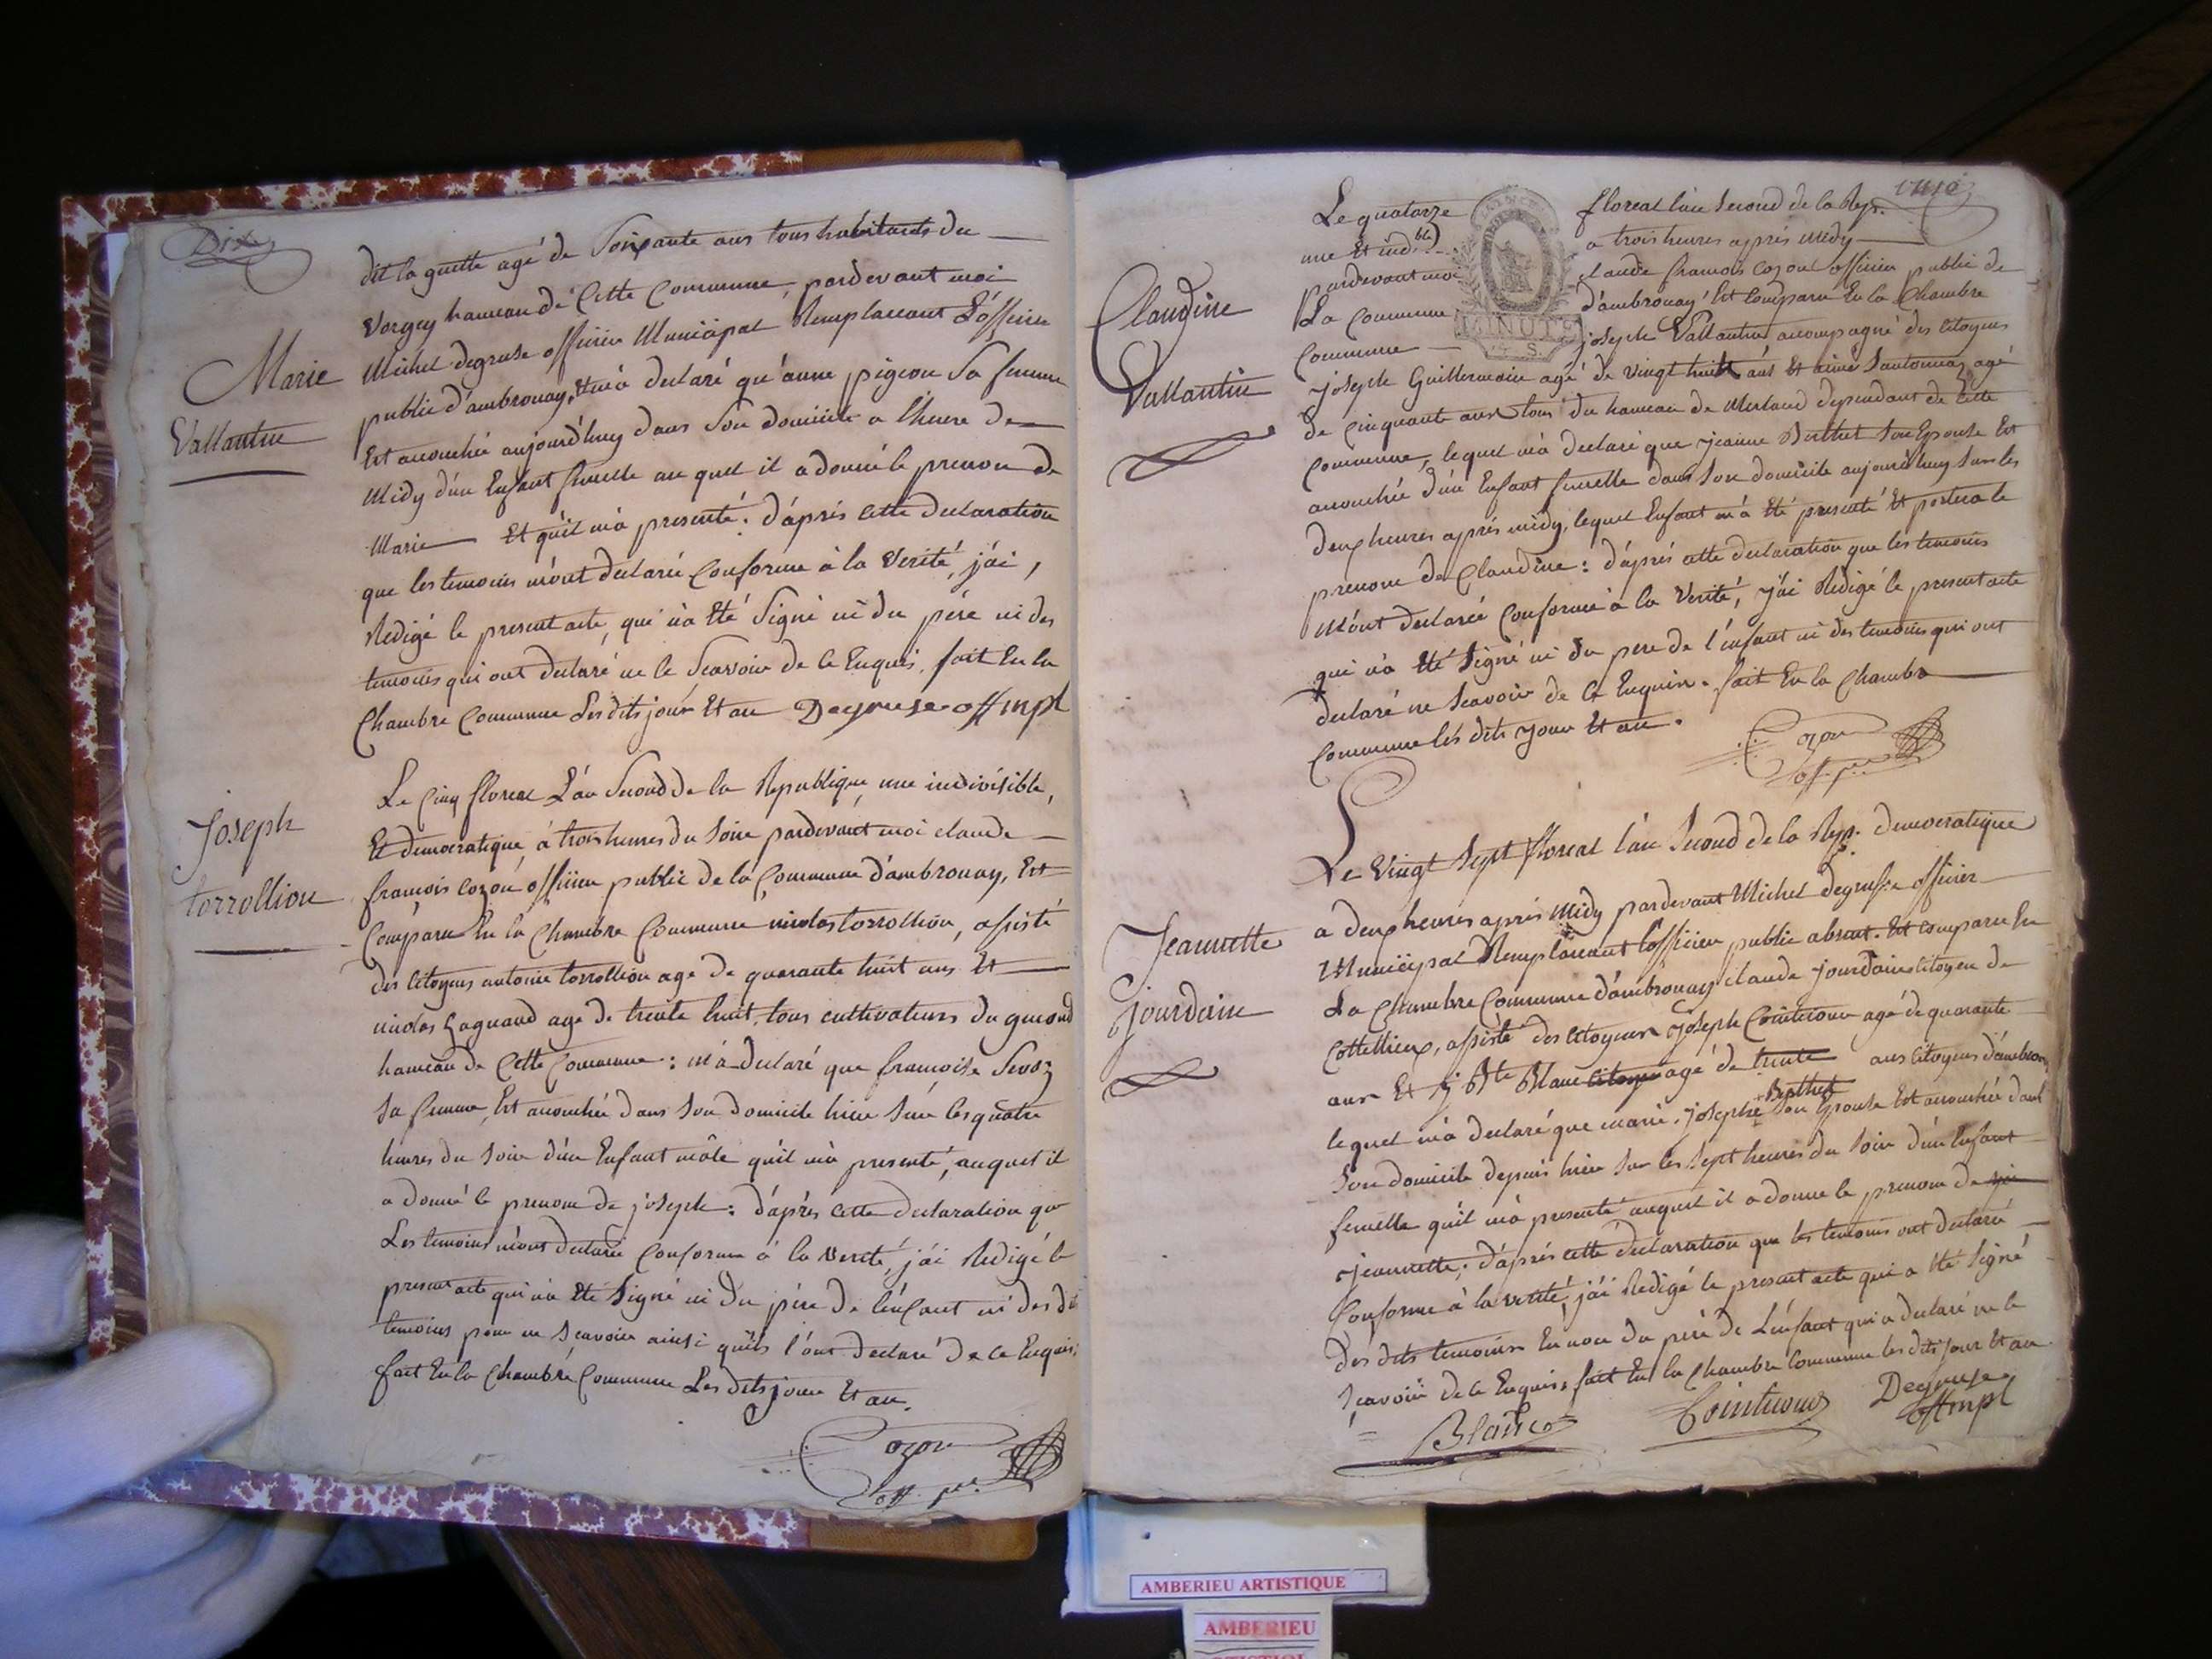 Dix
dit la guette agé de Soixante ans tous habitants du
Vorgey hameau de Cette Commune, pardevant moi
Michel degruse officier Municipal Remplacant L'officier
public d'ambronay, Et m'a declaré qu'anne pigeon Sa femme
Est accouchée aujourd'huy dans Son domicile a l'heure de
Midy d'un Enfant femelle au quel il a donné le prenom de
Marie Et qu'il m'a presenté: d'aprés cette declaration
que les temoins m'ont declarée Conforme à la Verité, j'ai,
Redigé le present acte, qui n'a Eté Signé ni du pére ni des
temoins qui ont declaré ne le Scavoir de ce Enquis. fait En la
Chambre Commune Les dits jour Et an Degruse off mpl
Marie
Vallantin
Le Cinq floreal L'an Second de la Republique, une indivisible,
Et democratique, à trois heures du Soir pardevant moi claude
françois cozon officier public de la Commune d'ambronay, Est
Comparu En la Chambre Commune nicolas torrollion, assisté
des Citoyens antoine torrollion agé de quarante huit ans Et
nicolas Gagnaud agé de trente huit, tous cultivateurs du
hameau de Cette Commune: m'a declaré que françoise Sevoz
Sa femme, Est accouchée dans Son domicile hier Sur les quatre
heures du Soir d'un Enfant mâle qu'il m'a presenté, auquel il
a donné le prenom de joseph: d'aprés cette declaration que
Les temoins m'ont declarée Conforme à la Verité, j'ai Redigé le
present acte qui n'a Eté Signé ni du pére de l'enfant ni des dits
temoins pour ne Scavoir ainsi qu'ils l'ont declaré de ce Enquis,
fait En la Chambre Commune Les dits jour Et an.
Cozon
off. pc.
Joseph
torrollion
Le quatorze floreal l'an Second de la Rep.
une Et indble a trois heures aprés midy
pardevant moi claude françois cozon officier public de
La Commune d'ambronay Est Comparu En la Chambre
Commune joseph Vallantin accompagné des Citoyens
joseph Guillermain agé de vingt huit ans Et aimé Santonnaz agé
de Cinquante ans tous du hameau de Merland dependant de Cette
Commune, lequel m'a declaré que jeanne Berthet Son Epouse Est
accouchée d'un Enfant femelle dans Son domicile aujourd'huy Sur les
deux heures aprés midy, lequel Enfant m'a Eté presenté Et portera le
prenom de Claudine: d'aprés cette declaration que les temoins
m'ont declarée Conforme à la Verité, j'ai Redigé le present acte
qui n'a Eté Signé ni du pere de l'enfant ni des temoins qui ont
declaré ne Scavoir de ce Enquis. fait En la Chambre
Commune les dits jour Et an.
Cozon
off. pc.
Claudine
Vallantin
MINUTE
Le Vingt Sept floreal l'an Second de la Rep. democratique
a deux heures aprés Midy pardevant Michel degruse officier
Municipal Remplacant l'officier public absent. Est comparu En
La Chambre Commune d'ambronay claude jourdain Citoyen de
Cottellieux, assisté des Citoyens joseph Cointicour agé de quarante
ans Et j. Bte Blanc citoyen agé de trente ans citoyens d'ambronay
lequel m'a declaré que marie. josephe Berthet Son Epouse Est accouchée dans
Son domicile depuis hier Sur les Sept heures du Soir d'un Enfant
femelle qu'il m'a presenté auquel il a donne le prenom de
jeannette; d'aprés cette declaration que les temoins ont declaré
Conforme à la verité, j'ai Redigé le present acte qui a Eté Signé
des dits temoins Et non du pére de L'enfant qui a declaré ne le
Scavoir de ce Enquis, fait En la Chambre Commune les dits jour Et an
Blanc Degruse
off mpl
Jeannette
jourdain
AMBERIEU ARTISTIQUE
AMBERIEU
ARTISTIQUE